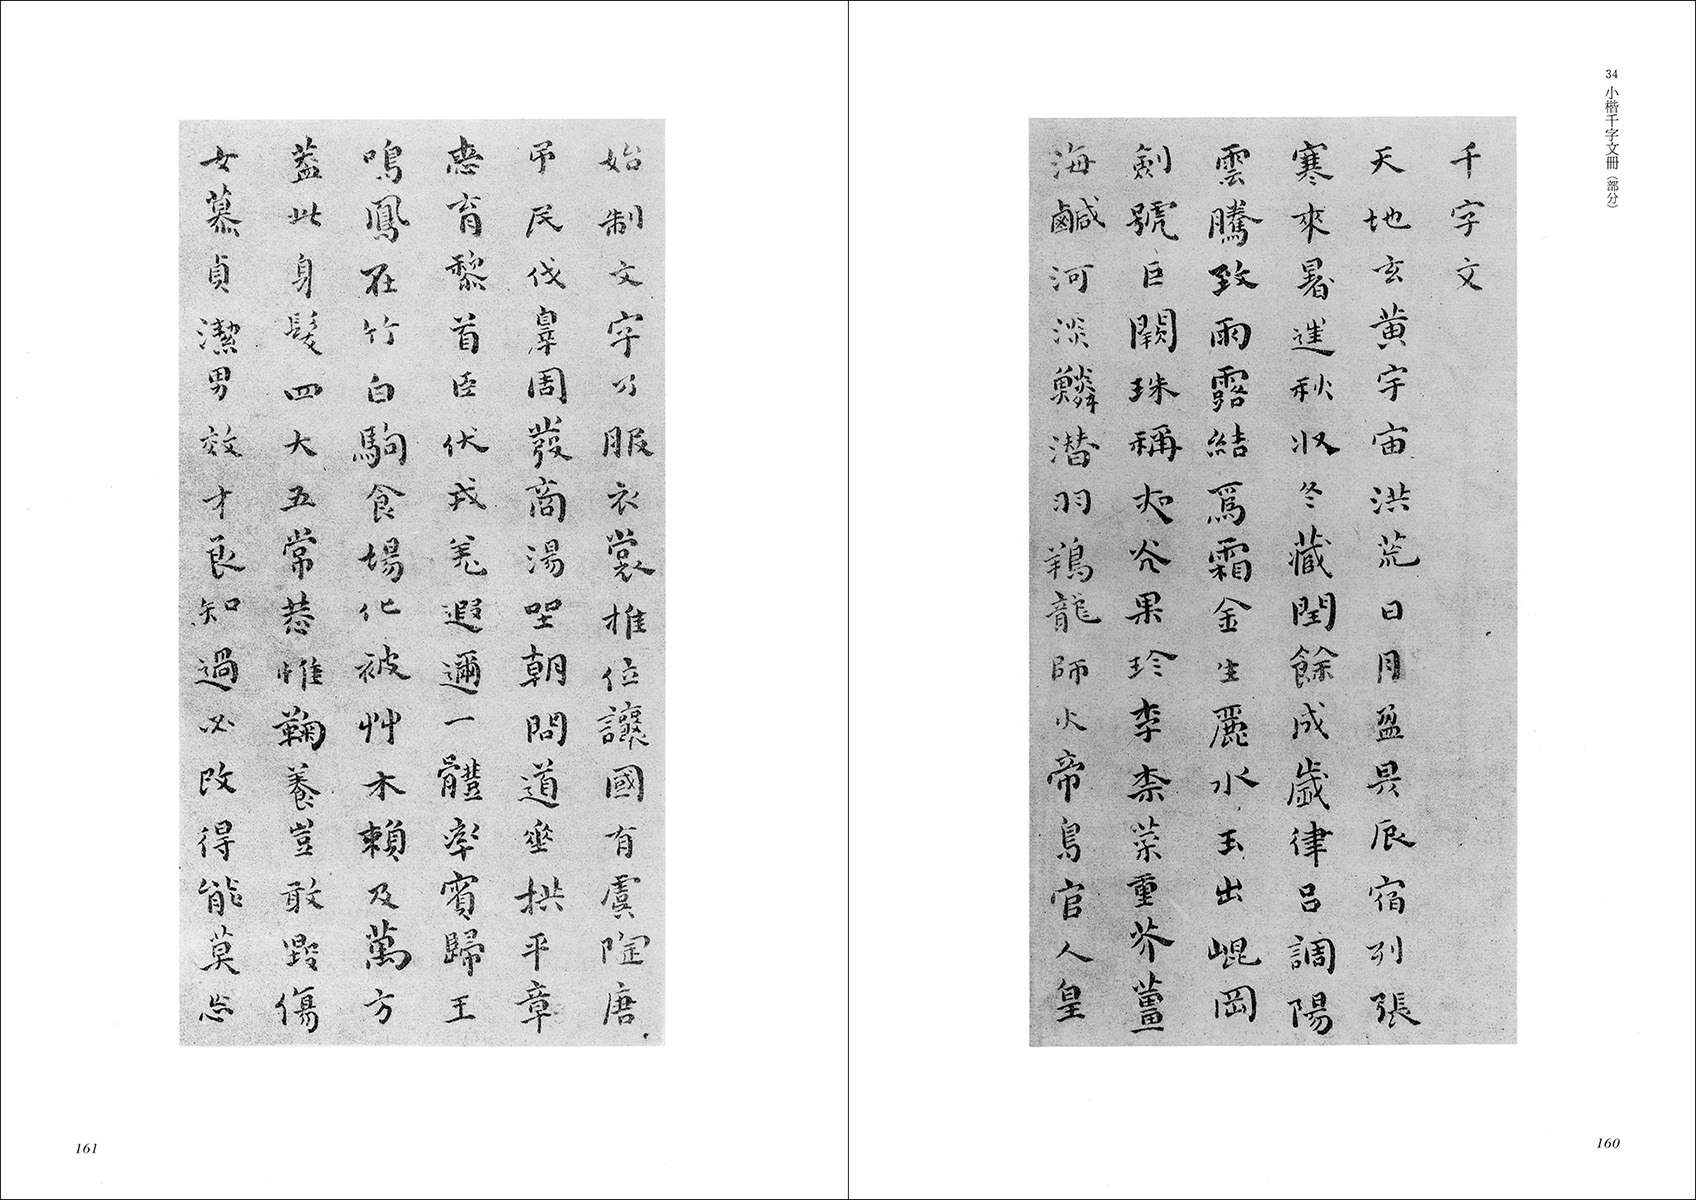 34 小楷千字文冊（部分）
千字文
天地玄黄宇宙洪荒日月盈昃辰宿列張
寒來暑進秋收冬藏閏餘成歲律呂調陽
雲騰致雨露結爲霜金生麗水玉出崐岡
劍號巨闕珠稱夜光果珍李柰菜重芥薑
海鹹河淡鱗潛羽鵗龍師火帝鳥官人皇
160
始制文字乃服衣裳推位讓國有虞陶唐
吊民伐辠周發商湯坐朝問道垂拱平章
悳育黎首臣伏戎羌遐邇一體率賓歸王
鳴鳳在竹白駒食場化被艸木賴及萬方
蓋此身髮四大五常恭惟鞠養豈敢毀傷
女慕貞潔男效才良知過必改得能莫忘
161